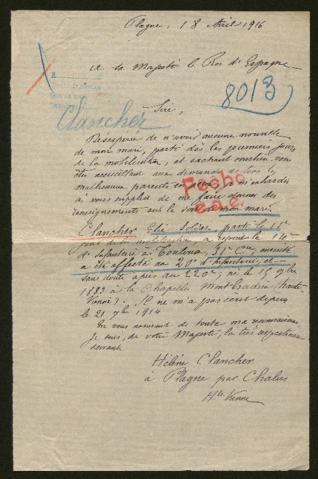 Plagne, 18 Avril 1916
A sa Majesté le Roi d'Espagne
8013
Sire,
Clancher
Désespérée de n'avoir aucune nouvelle
de mon mari, parti dès les premiers jours
de la mobilisation, et sachant combien vous
êtes accueillant aux demandes de tous les
malheureux parents
à vous supplier de me faire donner des
renseignements sur le sort de mon mari.
Fecho
Clancher Élie parti le 11e
jour de la mobilisation a rejoint le 14e
d'Infanterie à Toulouse, 31e Cie, ensuite
a été affecté au 209e d'Infanterie, et
sans doute après au 220e; né le 15 9bre
1883 à la Chapelle Montbrandeix (Haute-
Vienne). Il ne m'a pas écrit depuis
le 21 9bre 1914
En vous assurant de toute ma reconnaissance
je suis, de votre Majesté, la très respectueuse
servante
Hélène Clancher
à Plagne par Chalus
Hte Vienne